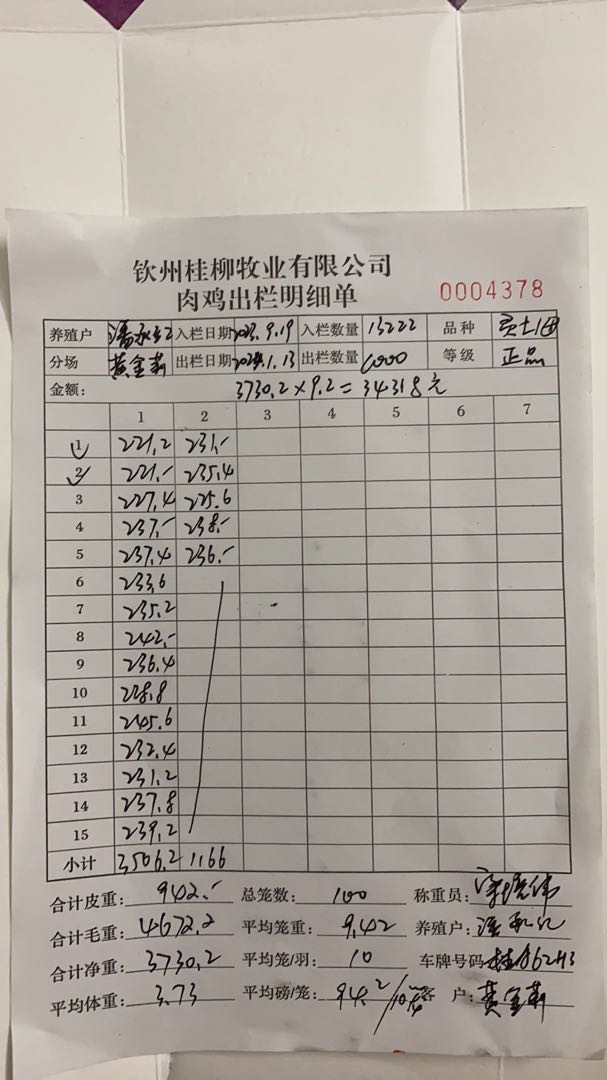 钦州桂柳牧业有限公司
肉鸡出栏明细单 0004378
养殖户 入栏日期 2023.9.19 入栏数量 13222 品种
分场 黄金莉 出栏日期 2024.1.13 出栏数量 1000 等级 正品
金额: 3730.2×9.2=34318元
1 2 3 4 5 6 7
1 221.2 231.-
2 221.- 235.4
3 227.4 225.6
4 237.- 238.-
5 237.4 236.-
6 233.6
7 235.2
8 242.-
9 236.4
10 228.8
11 245.6
12 232.4
13 231.2
14 237.8
15 239.2
小计 3506.2 1166
合计皮重: 942.- 总笼数: 100 称重员:
合计毛重: 4672.2 平均笼重: 9.42 养殖户:
合计净重: 3730.2 平均笼/羽: 10 车牌号码:
平均体重: 3.73 平均磅/笼: 94.2/10 客户: 黄金莉